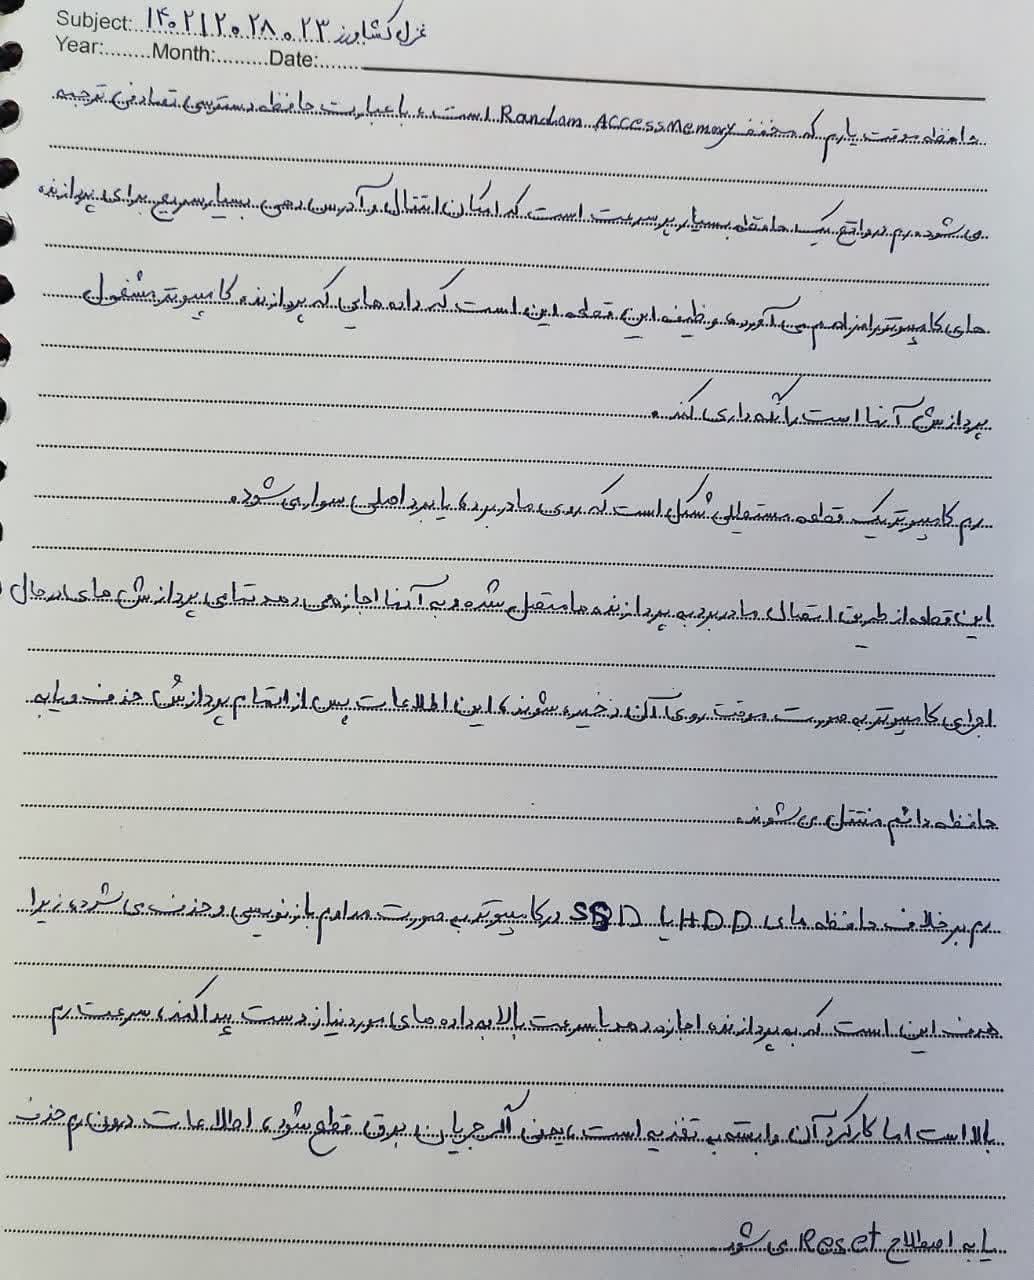 Subject: غزل کشاورز ۱۴۰۲۱۲۰۲۸۰۲۳
Year:........Month:.........Date:.......
حافظه موقت یا رم که مخفف Random Access Memory است، با عبارت حافظه دسترسی تصادفی ترجمه
می شود. رم در واقع یک حافظه بسیار پر سرعت است که امکان انتقال و آدرس دهی بسیار سریع برای پردازنده
های کامپیوتر را فراهم می آورد. وظیفه این قطعه این است که داده هایی که پردازنده کامپیوتر مشغول
پردازش آنها است را نگه داری کند.
رم کامپیوتر یک قطعه مستطیلی شکل است که روی مادربرد، یا برد اصلی سوار می شود.
این قطعه از طریق اتصال مادربرد به پردازنده ها متصل شده و به آنها اجازه می دهد تمامی پردازش های در حال
اجرای کامپیوتر به صورت موقت روی آن ذخیره شوند، این اطلاعات پس از اتمام پردازش حذف و یا به
حافظه دائم منتقل می شوند.
رم بر خلاف حافظه های HDD یا SSD در کامپیوتر به صورت مداوم بازنویسی و حذف می شود، زیرا
هدف این است که به پردازنده اجازه دهد با سرعت بالا به داده های مورد نیاز دست پیدا کند، سرعت رم
بالا است اما کارکرد آن وابسته به تغذیه است، یعنی اگر جریان برق قطع شود، اطلاعات درون رم حذف
یا به اصطلاح Reset می شود